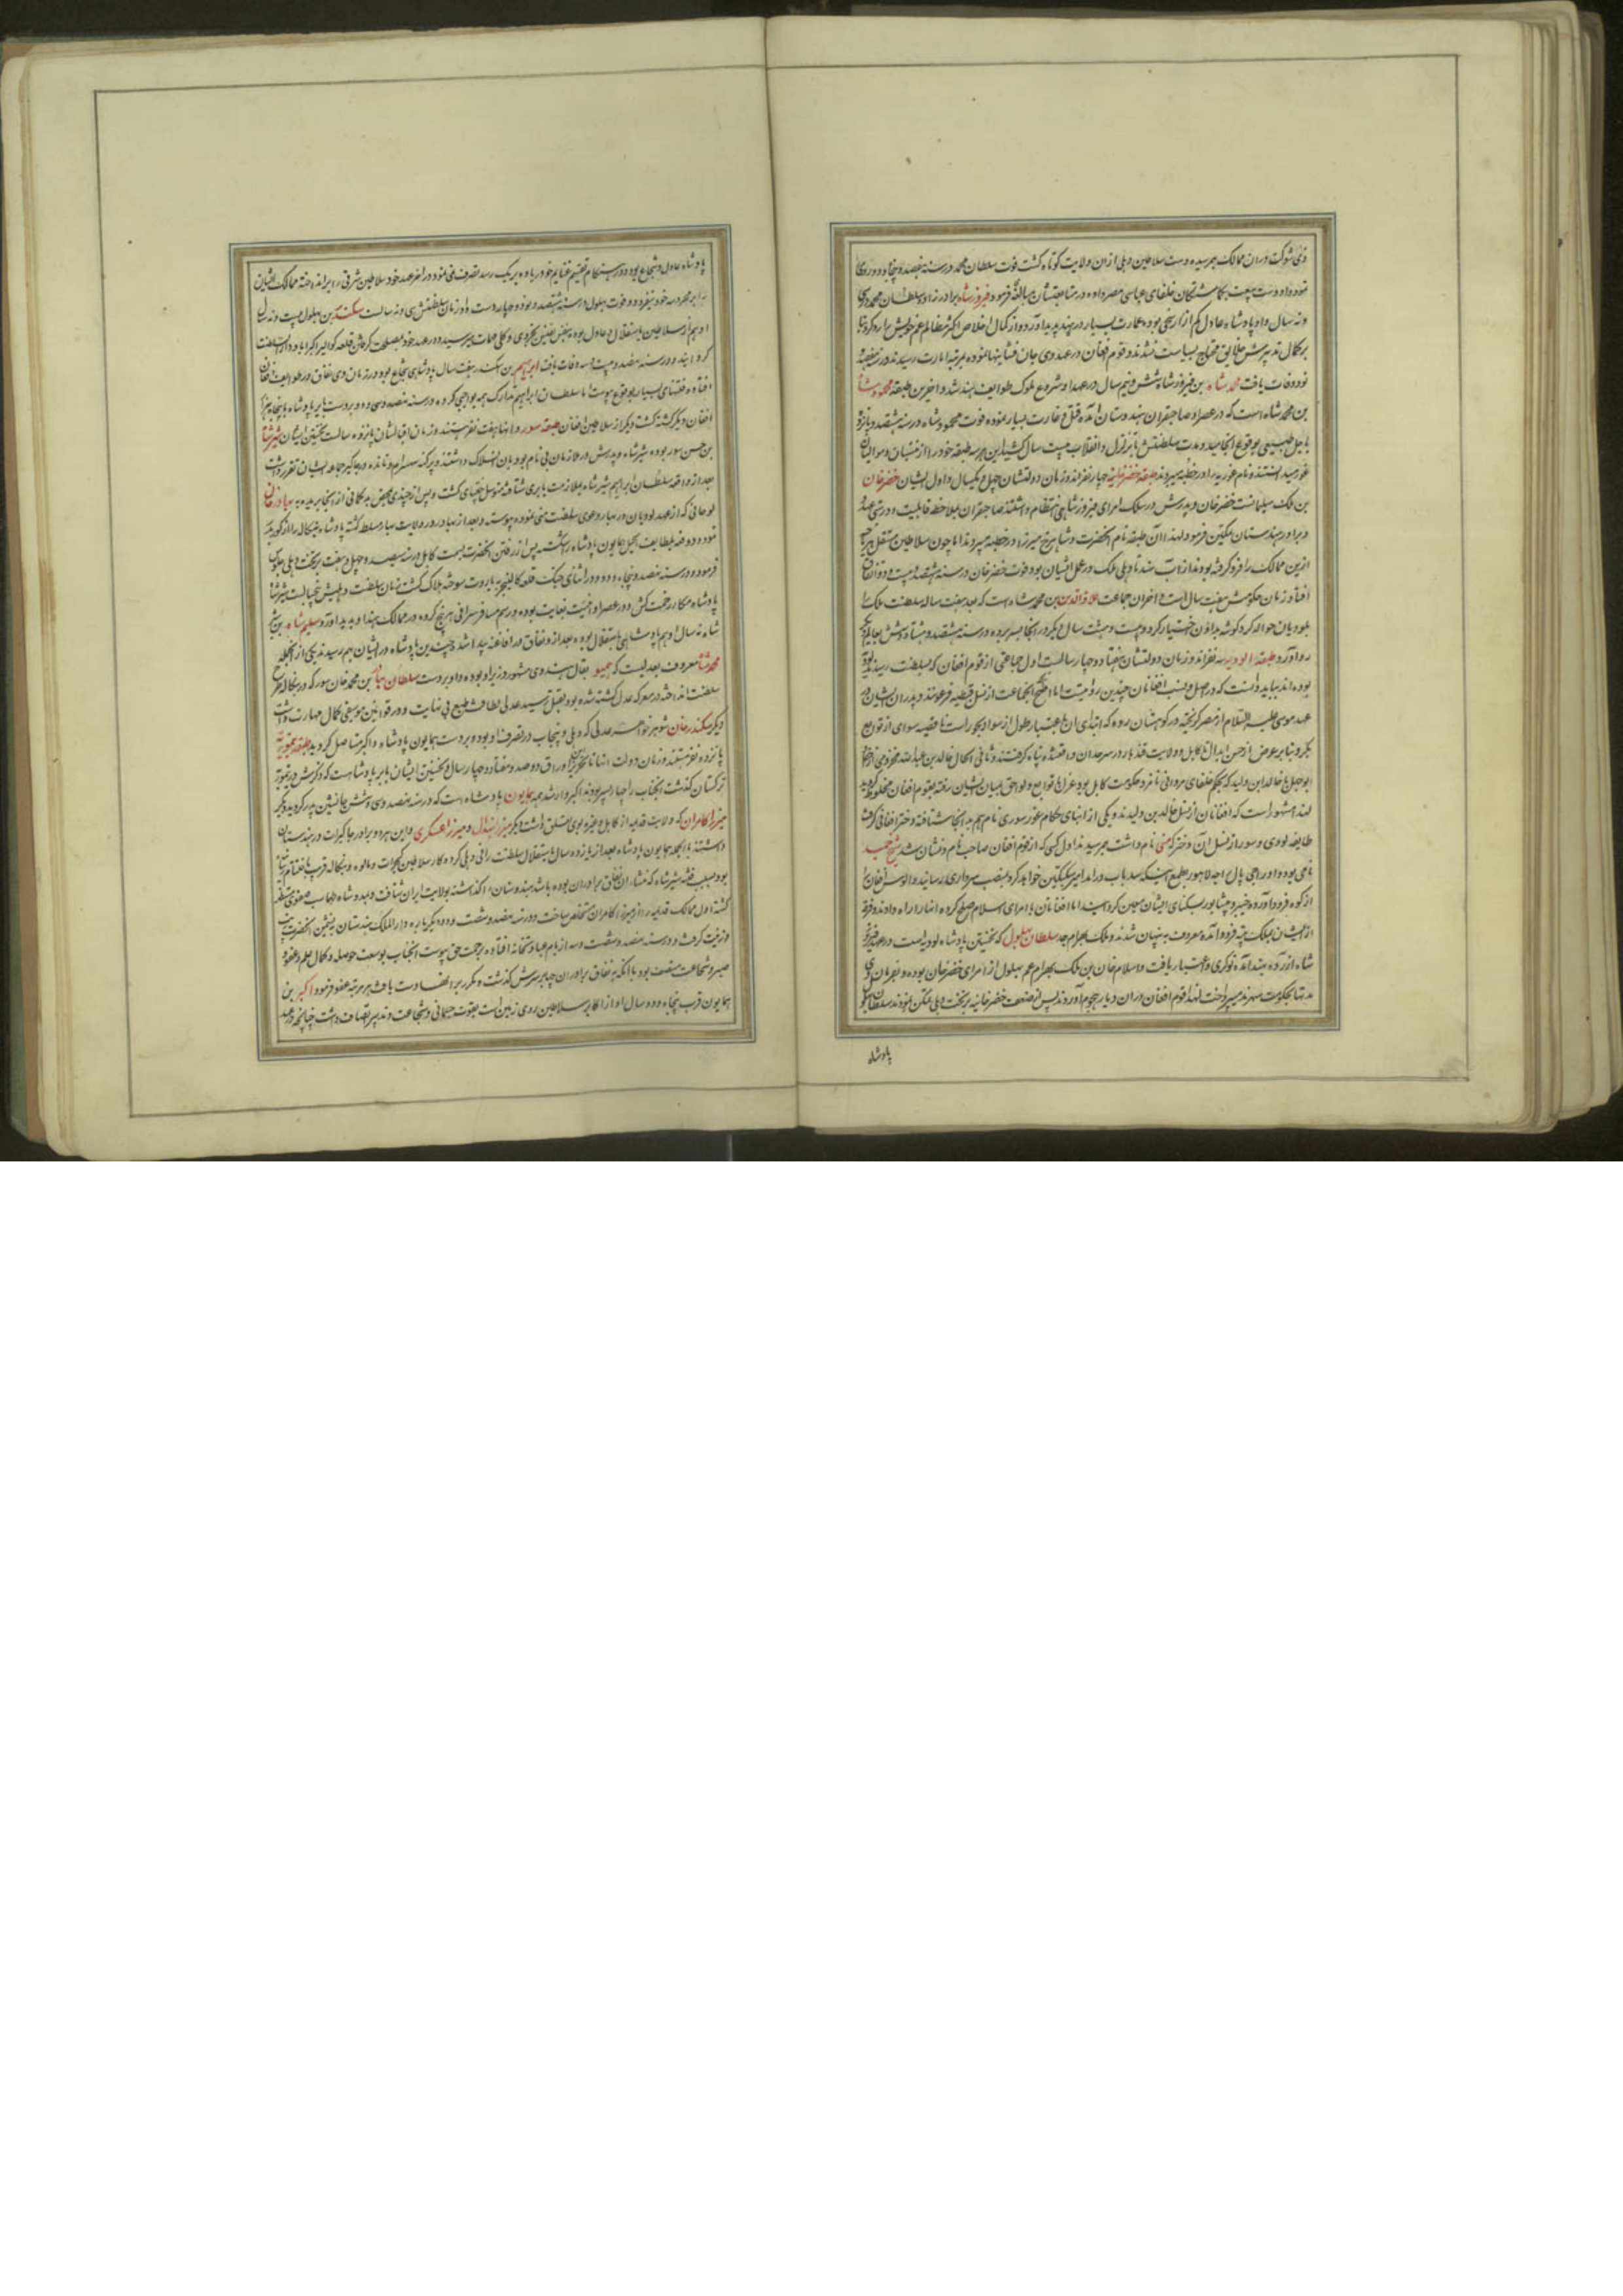 ذی شوکت دران ممالک بهمرسیده دست سلاطین دهلی ازان ولایت کوتاه گشت فوت سلطان محمد در سنه هفصد و پنجاه و دو روی
نموده او دست بیعت بکماشتکان خلفای عباسی مصر داده در متابعتشان مبالغه فرمود و فیروز شاه برادر زاده سلطان محمد سی
ونه سال واو پادشاه عادل کم ازار سخی بوده عمارت بسیار در هند پدید آورد و از کمال اخلاص اکثر مظالم عم خویش را رد کرد بنا
بر کمال تدبیرش خلایق محتاج بسیاست نشدند و قوم افغان در عهد وی جان فشانیها نموده بمرتبه امارت رسیدند در هفصد
نود وفات یافت محمد شاه بن فیروز شاه شش و نیم سال در عهد او شروع ملوک طوایف بهند شد و اخرین طبقه محمود شاه
بن محمد شاه است که در عصر او صاحبقران بهندوستان آمده قتل و غارت بسیار نموده فوت محمود شاه در سنه هشتصد و پانزده
باجل طبیعی بوقوع انجامید و مدت سلطنتش با تزلزل و انقلاب بیست سال کشید این هر سه طبقه خود را از منتسبان و موالیان
غور میدانستند و نام غوریه را در خطبه میبردند طبقه خضر خانیه چهار نفراند و زمان دولتشان چهل و یکسال و اول ایشان خضر خان
بن ملک سلیمانست خضر خان و پدرش در سلک امرای فیروز شاهی انتظام داشتند صاحبقران بملاحظه قابلیت و درستی عهد
ویرا در هندوستان متمکن فرمود لهذا آن طبقه نام انحضرت و شاهرخ میرزا در خطبه میبردند اما چون سلاطین مستقل هر جا
ازین ممالک را فرو گرفته بودند از آب سند تا دهلی ملک در عمل ایشان بود فوت خضر خان در سنه هشتصد و بیست و چهار اتفاق
افتاد زمان حکومتش هفت سال است و اخر ان جماعت علاءالدین بن محمد شاه است که بعد هفت ساله سلطنت ملک را
بلودیان حواله کرد گوشه بداؤن اختیار کرد و بیست و هشت سال دیگر در انجا بسر برده در سنه هشتصد و هشتاد و شش بعالم دیگر
رو آورد طبقه الودیه سه نفراند و زمان دولتشان هفتاد و چهار سالست اول جماعتی از قوم افغان که بسلطنت رسیدند لودیه
بوده اند بباید دانست که در اصل و نسب افغانان چندین روایت است اما اصح انکه انجماعت از نسل قبطیه فرعونند و پدران ایشان در
عهد موسی علیه السلام از مصر گریخته در کوهستان روه که ابتدای ان باعتبار طول از سواد بجور است تا قصبه سوی از توابع
بکر و بنابر عرض از حسن ابدال تا کابل و ولایت قندهار در سرحد ان واقعشده پناه گرفتند و ثانی الحال خالد بن عبدالله مخزومی از نسل
ابوجهل یا خالد ابن ولید که بحکم خلفای مروانی نامزد حکومت کابل بود عزل با توابع و لواحق بمیان ایشان رفته بقوم افغان مخلوط گردید
لهذا مشهور است که افغانان از نسل خالد بن ولیدند و یکی از ابنای حکام غور سوری نام هم بد انجا شتافته دختر افغانی گرفت
طایفه لودی و سور از نسل آن دختر که متی نام داشت بهمرسیدند اول کسی که از قوم افغان صاحب نام و نشان شد شیخ حمید
نامی بود و او راجی پال راجه لاهور بطمع اینکه سد باب در امد امیر سبکتکین خواهد کرد بمنصب سرداری رسانید و الوس افغان را
از کوه فرود آورده خیبر و پشاور بسکنای ایشان معین گردانید اما افغانان با امرای اسلام صلح کرده انها را راه دادند و فرقه
از ایشان بملک هند فرود آمده معروف به پتهان شدند و ملک بهرام جد سلطان بهلول که نخستین پادشاه لودیه است در عهد فیروز
شاه از روه بهند آمده نوکری و اعتبار یافت و اسلام خان بن ملک بهرام عم بهلول از امرای خضر خان بوده و بفرمان وی
مدتها بحکومت سهرند میپرداخت لهذا قوم افغان دران دیار هجوم آوردند پس از ضعف خضر خانیه بر تخت دهلی متمکن نمودند سلطان بهلول
پادشاه
پادشاه عادل و شجاع بود و در هنگام تقسیم غنایم خود را داده بر یک رسد تصرف می نمود در اخر عهد خود سلاطین شرقی را برانداخته ممالک ایشان
را بر محروسه خود بیفزود و فوت بهلول در سنه هشتصد و نود و چهار دست داد زمان سلطنتش سی و نه سالست سکندر بن بهلول بیست و نه سال
او هم از سلاطین باستقلال و عادل بوده بنفس نفیس بجزوی و کلی مهمات میرسید و در عهد خود بمصلحت گرفتن قلعه گوالیر اکبراباد دارالسلطنت
گردانید و در سنه نهصد و بیست و سه وفات یافت ابراهیم بن سکندر هفت سال پادشاهی شجاع بود و در زمان وی نفاق در طوایف افغان
افتاده فتنهای بسیار بوقوع پیوست تا سلطان ابراهیم تدارک همه بواجبی کرده در سنه نهصد و سی و دو بر دست بابر پادشاه با پنجاه هزار
افغان دیگر کشته گشت دیگر از سلاطین افغان طبقه سور و انها هفت نفر هستند و زمان اقبالشان پانزده سالست نخستین ایشان شیر شاه
بن حسن سور بوده شیر شاه و پدرش در ملازمان بی نام لودیان انسلاک داشتند و پرگنه سهسرام و تانده در جاگیر جماعه ایشان تقرر داشت
بعد از واقعه سلطان ابراهیم شیر شاه بملازمت بابری شتافته متوسل چغتای گشت و پس از چندی محض بد گمانی از انجا بریده به بهادر خان
لوحانی که از عهد لودیان در بهار دعوی سلطنت می نمود پیوسته و بعد از بهادر در ولایت بهار مسلط گشته پادشاه بنگاله را از گور بدر
نموده دو دفعه بلطایف الحیل همایون پادشاه را شکست پس از رفتن انحضرت بسمت کابل در سنه نهصد و چهل و هفت بر تخت دهلی جلوس
فرموده در سنه نهصد و پنجاه و دو در اثنای جنگ قلعه کالنجر به باروت سوخته هلاک گشت زمان سلطنت دهلیش پنجسالست شیر شاه
پادشاه مکار رخت کش و در عصر او امنیت بغایت بوده و رسم مسافر سرائی هر پنج کروه در ممالک هند او پدید آورد سلیم شاه بن شیر
شاه نه سال او هم پادشاهی باستقلال بوده بعد از و نفاق در افاغنه پیدا شد و چندین پادشاه در ایشان بهم رسیدند یکی از انجمله
محمد شاه معروف بعدلیست که هیمو بقال هندوی مشهور وزیر او بوده و او بر دست سلطان بهادر بن محمد خان سور که در بنگاله طرح
سلطنت انداخته در معرکه عدل کشته شده بود بقتل رسید عدلی لطافت طبع بی نهایت و در قوانین موسیقی بکمال مهارت داشت
دیگر سکندر خان شوهر خواهر عدلی که دهلی و پنجاب در تصرف او بود و بر دست همایون پادشاه و اکبر مستاصل گردید طبقه تیموریه
پانزده نفر هستند و زمان دولت انها تا تحریر این اوراق دو صد و هفتاد و چهار سال و نخستین ایشان بابر پادشاهست که ذکرش در تیموریه
ترکستان گذشت انجناب را چهار پسر بودند اکبر و ارشد همه همایون پادشاه است که در سنه نهصد و سی و شش جانشین پدر گردید دیگر
میرزا کامران که ولایت قدیمه از کابل و غیره بوی تعلق داشت دیگر میرزا هندال و میرزا عسکری و این هر دو برادر جاگیرات در هندوستان
داشتند بالجمله همایون پادشاه بعد از یازده سال باستقلال سلطنت رانی دهلی کرده کار سلاطین گجرات و مالوه و بنگاله قریب باختتام رسانیده
بود بسبب فتنه شیر شاه که منشاء ان نفاق برادران بوده باشد هندوستان را گذاشته بولایت ایران شتافت و بمدد شاه طهماسب صفوی مستظهر
گشته اول ممالک قدیمه را از میرزا کامران متخلص ساخت و در سنه نهصد و شصت و دو دیگر باره دارالملک هندوستان به یمین انحضرت زیب
و زینت گرفت و در سنه نهصد و شصت و سه از بام عبادتخانه افتاده برحمت حق پیوست انجناب بوسعت حوصله و کمال علم و عفو و
صبر و شجاعت متصف بود با انکه به نفاق برادران چها بر سرش گذشت و مکرر بر انها دست یافت هر مرتبه عفو فرمود اکبر بن
همایون قرب پنجاه و دو سال او از اکابر سلاطین روی زمین است بقوت جسمانی و شجاعت و تدبیر اتصاف داشت چنانچه در عهد